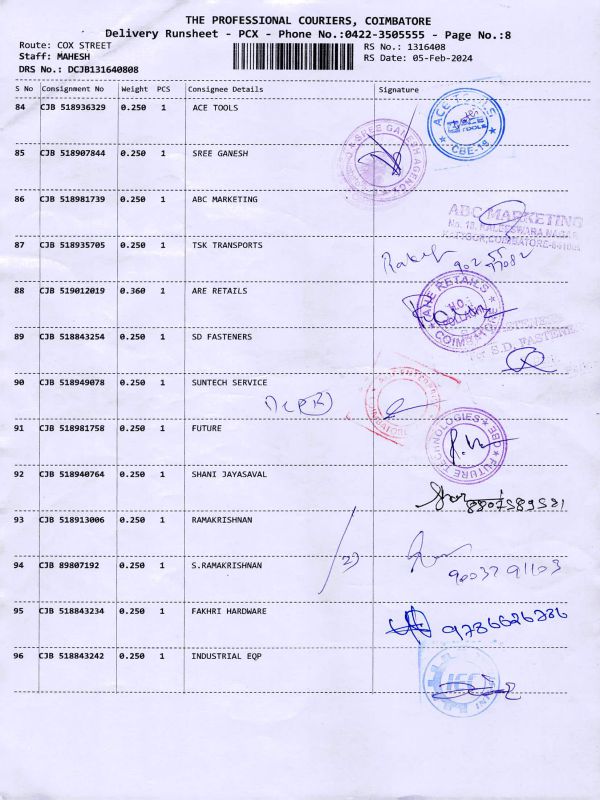 THE PROFESSIONAL COURIERS, COIMBATORE
Delivery Runsheet - PCX - Phone No.:0422-3505555 - Page No.:8
Route: COX STREET
RS No.: 1316408
Staff: MAHESH
RS Date: 05-Feb-2024
DRS No.: DCJB131640808
S No Consignment No Weight PCS Consignee Details Signature
84 CJB 518936329 0.250 1 ACE TOOLS
ACE TOOLS
CBE-18
85 CJB 518907844 0.250 1 SREE GANESH
SREE GANESH AGENCY
86 CJB 518981739 0.250 1 ABC MARKETING
ABC MARKETING
87 CJB 518935705 0.250 1 TSK TRANSPORTS
88 CJB 519012019 0.360 1 ARE RETAILS
ARE RETAILS
89 CJB 518843254 0.250 1 SD FASTENERS
S.D. FASTENE
90 CJB 518949078 0.250 1 SUNTECH SERVICE
91 CJB 518981758 0.250 1 FUTURE
FUTURE TECHNOLOGIES CBE
92 CJB 518940764 0.250 1 SHANI JAYASAVAL
93 CJB 518913006 0.250 1 RAMAKRISHNAN
94 CJB 89807192 0.250 1 S.RAMAKRISHNAN
95 CJB 518843234 0.250 1 FAKHRI HARDWARE
9786626786
96 CJB 518843242 0.250 1 INDUSTRIAL EQP